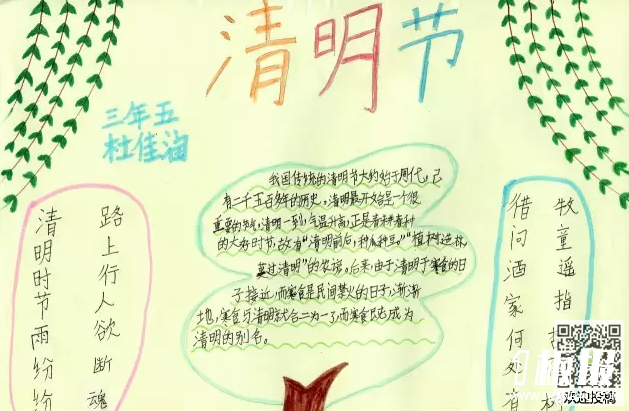 清明节
三年五
杜佳涵
清明时节雨纷纷
路上行人欲断魂
我国传统的清明节大约始于周代。已
有二千五百多年的历史。清明最开始是一个很
重要的节气,清明一到,气温升高,正是春耕春种
的大好时节,故有“清明前后,种瓜种豆。”“植树造林,
莫过清明”的农谚。后来,由于清明于寒食的日
子接近,而寒食是民间禁火的日子,渐渐
地,寒食与清明就合二为一了,而寒食既成为
清明的别名。
借问酒家何处有
牧童遥指
欢迎投稿